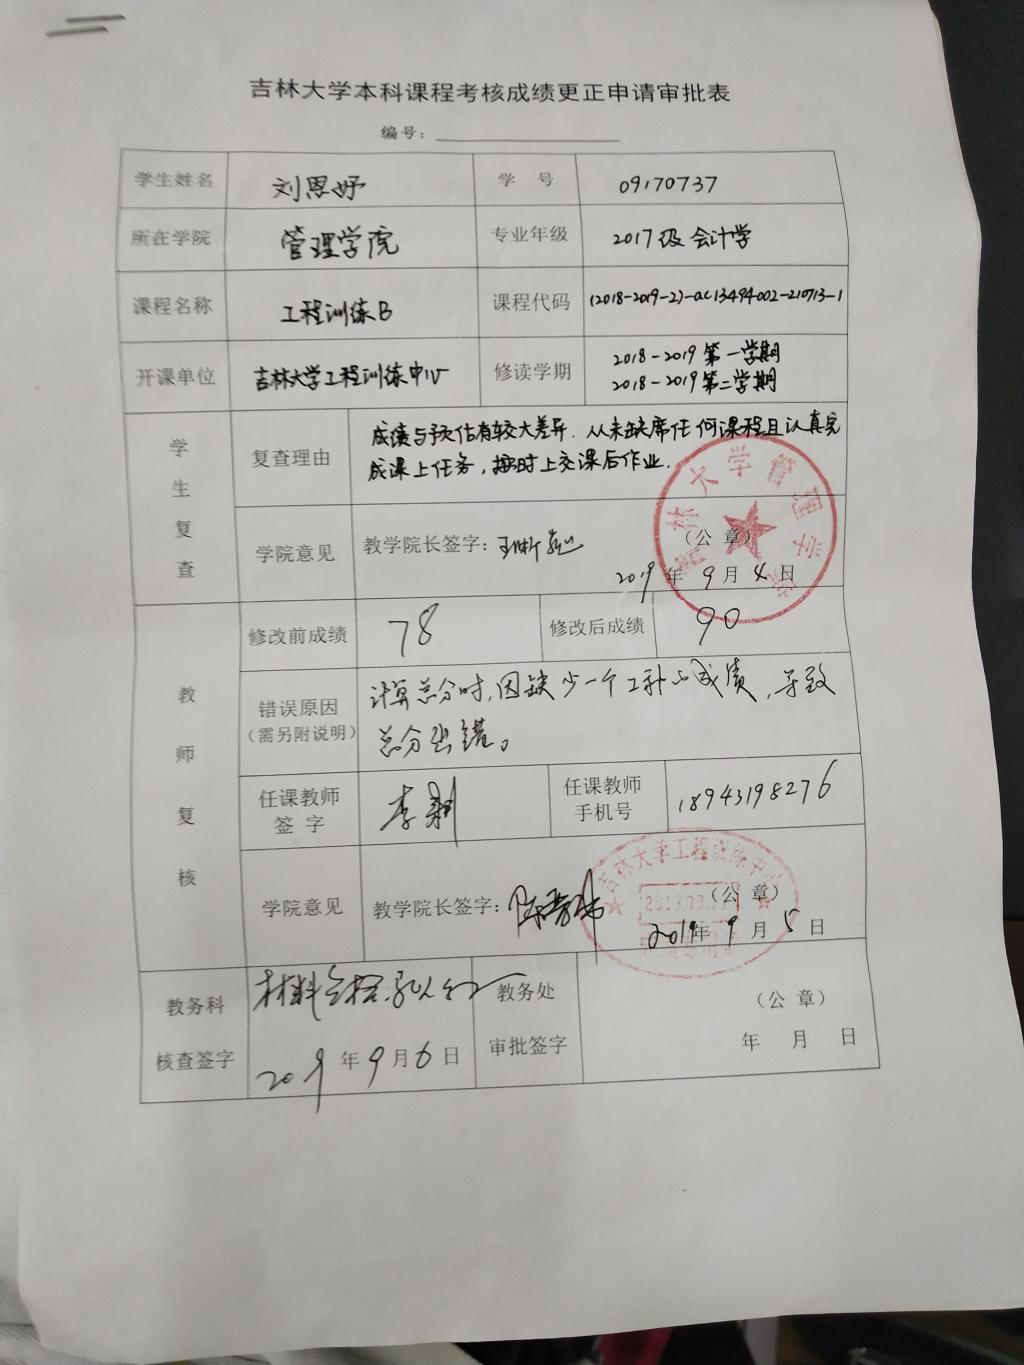 吉林大学本科课程考核成绩更正申请审批表
编号：
学生姓名 刘思妤 学 号 09170737
所在学院 管理学院 专业年级 2017级 会计学
课程名称 工程训练B 课程代码 (2018-2019-2)-ac13494002-210713-1
开课单位 吉林大学工程训练中心 修读学期 2018-2019 第一学期
2018-2019 第二学期
学生复查 复查理由 成绩与预估有较大差异. 从未缺席任何课程且认真完
成课上任务，按时上交课后作业.
学院意见 教学院长签字： （公 章）
2019 年 9 月 4 日
吉林大学管理学院
教师复核 修改前成绩 78 修改后成绩 90
错误原因 计算总分时，因缺少一个工种的成绩，导致
（需另附说明） 总分出错。
任课教师
签 字 李
任课教师
手机号 18943198276
吉林大学工程训练中心
学院意见 教学院长签字： （公 章）
2019年 9 月 5 日
教务科
核查签字 材料合格.
2019 年 9 月 6 日
教务处
审批签字 （公 章）
年 月 日